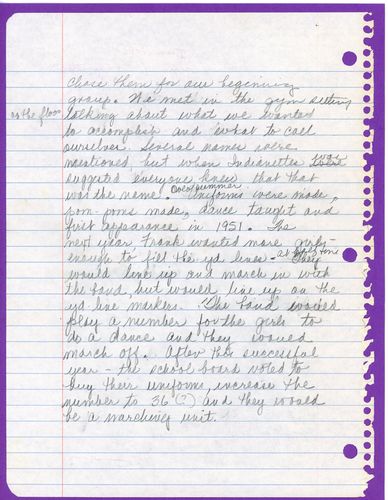 chose them for our beginning
group. We met in the gym sitting
on the floor
talking about what we wanted
to accomplish and what to call
ourselves. Several names were
mentioned, but when Indianettes was
suggested everyone knew that that
was the name. Over summer Uniforms were made,
pom-poms made, dance taught and
first appearance in 1951. The
next year Frank wanted more girls -
enough to fill the yd lines. at half time They
would line up and march in with
the band, but would line up on the
yd line markers. The band would
play a number for the girls to
do a dance and they would
march off. After this successful
year - the school board voted to
buy their uniforms, increase the
number to 36 (?) and they would
be a marching unit.